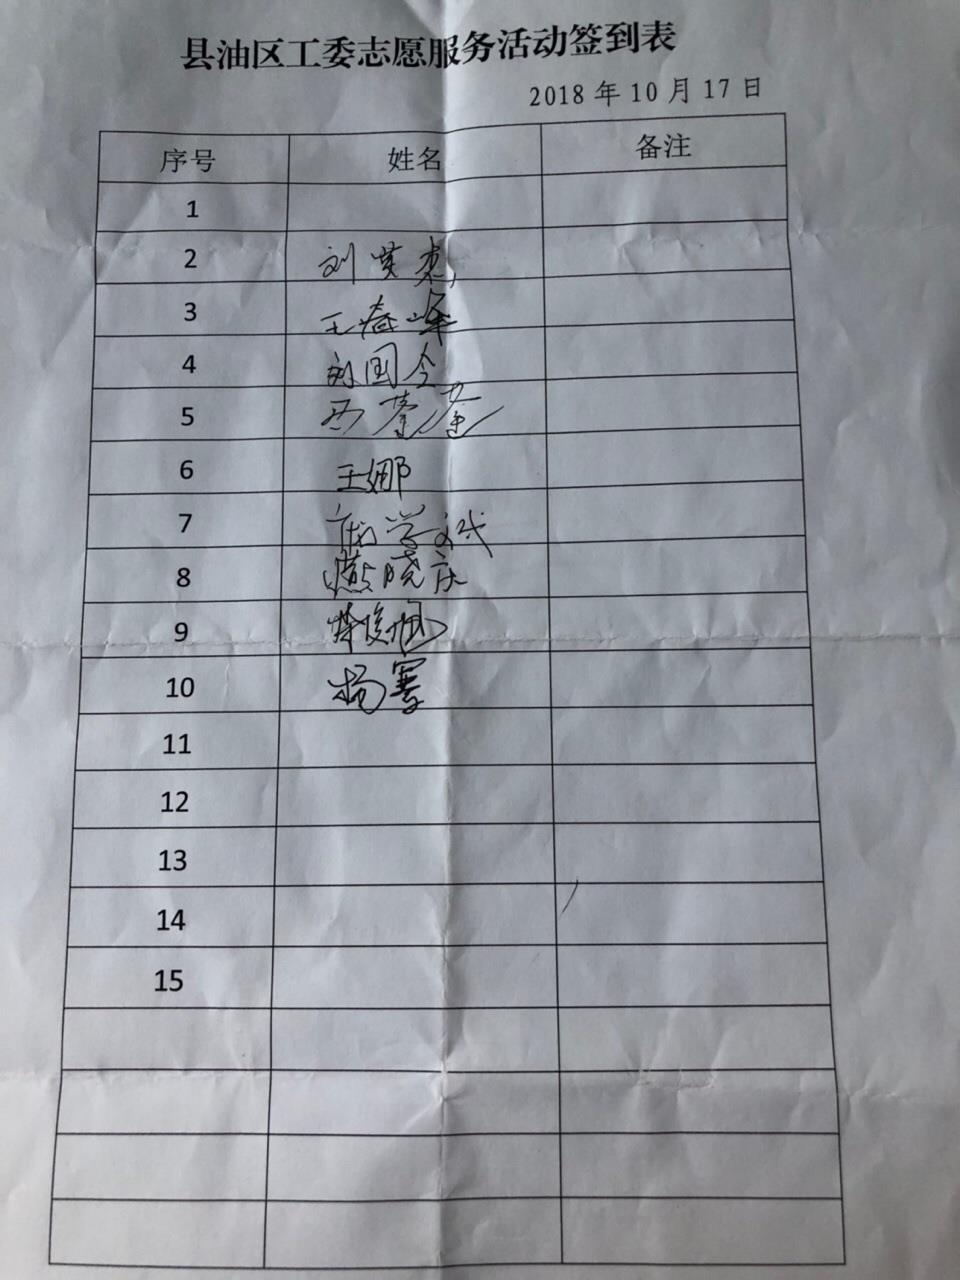 县油区工委志愿服务活动签到表
2018 年 10 月 17 日
序号 姓名 备注
1
2 刘英杰
3 王春峰
4 刘国全
5
6 王娜
7
8 晓庆
9
10 杨骞
11
12
13
14
15